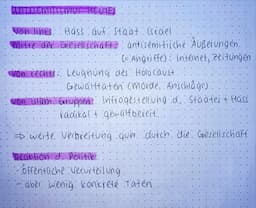 Antisemitismus heute
von links: Hass auf Staat Israel
Mitte der Gesellschaft: antisemitische Äußerungen
(= Angriffe): Internet, Zeitungen
von rechts: Leugnung des Holocaust
Gewalttaten (Morde, Anschläge)
von islam. Gruppen: Infragestellung d. Staates + Hass
radikal + gewaltbereit
⇒ weite Verbreitung quer durch die Gesellschaft
Reaktion d. Politik
- öffentliche Verurteilung
- aber wenig konkrete Taten